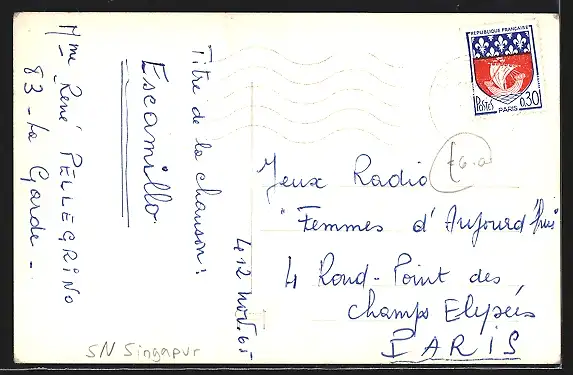 Mme René PELLEGRINO
83 - La Garde -
Titre de la chanson:
Escamillo
4 12 nov. 65
REPUBLIQUE FRANÇAISE
POSTES 0,30
PARIS
Jeux Radio
"Femmes d'Aujourd'hui"
4 Rond-Point des
Champs Elysées
PARIS
SN Singapur